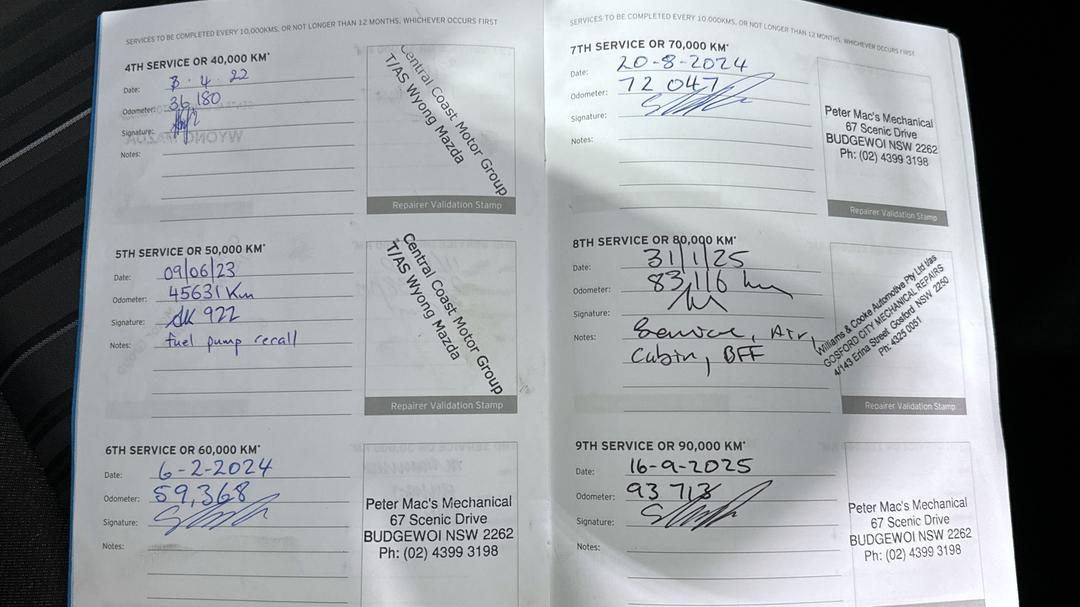 SERVICES TO BE COMPLETED EVERY 10,000KMS, OR NOT LONGER THAN 12 MONTHS, WHICHEVER OCCURS FIRST
4TH SERVICE OR 40,000 KM*
Date: 3.4.22
Odometer: 36 180
Signature:
Notes:
Central Coast Motor Group
T/AS Wyong Mazda
Repairer Validation Stamp
5TH SERVICE OR 50,000 KM*
Date: 09/06/23
Odometer: 45631 Km
Signature: SK 922
Notes: fuel pump recall
Central Coast Motor Group
T/AS Wyong Mazda
Repairer Validation Stamp
6TH SERVICE OR 60,000 KM*
Date: 6-2-2024
Odometer: 59,368
Signature:
Notes:
Peter Mac's Mechanical
67 Scenic Drive
BUDGEWOI NSW 2262
Ph: (02) 4399 3198
SERVICES TO BE COMPLETED EVERY 10,000KMS, OR NOT LONGER THAN 12 MONTHS, WHICHEVER OCCURS FIRST
7TH SERVICE OR 70,000 KM*
Date: 20-8-2024
Odometer: 72 047
Signature:
Notes:
Peter Mac's Mechanical
67 Scenic Drive
BUDGEWOI NSW 2262
Ph: (02) 4399 3198
Repairer Validation Stamp
8TH SERVICE OR 80,000 KM*
Date: 31/1/25
Odometer: 83,116 km
Signature:
Notes: Service, Air,
Cabin, BFF
Williams & Cooke Automotive Pty Ltd t/as
GOSFORD CITY MECHANICAL REPAIRS
4/143 Erina Street, Gosford NSW 2250
Ph: 4325 0051
Repairer Validation Stamp
9TH SERVICE OR 90,000 KM*
Date: 16-9-2025
Odometer: 93 713
Signature:
Notes:
Peter Mac's Mechanical
67 Scenic Drive
BUDGEWOI NSW 2262
Ph: (02) 4399 3198